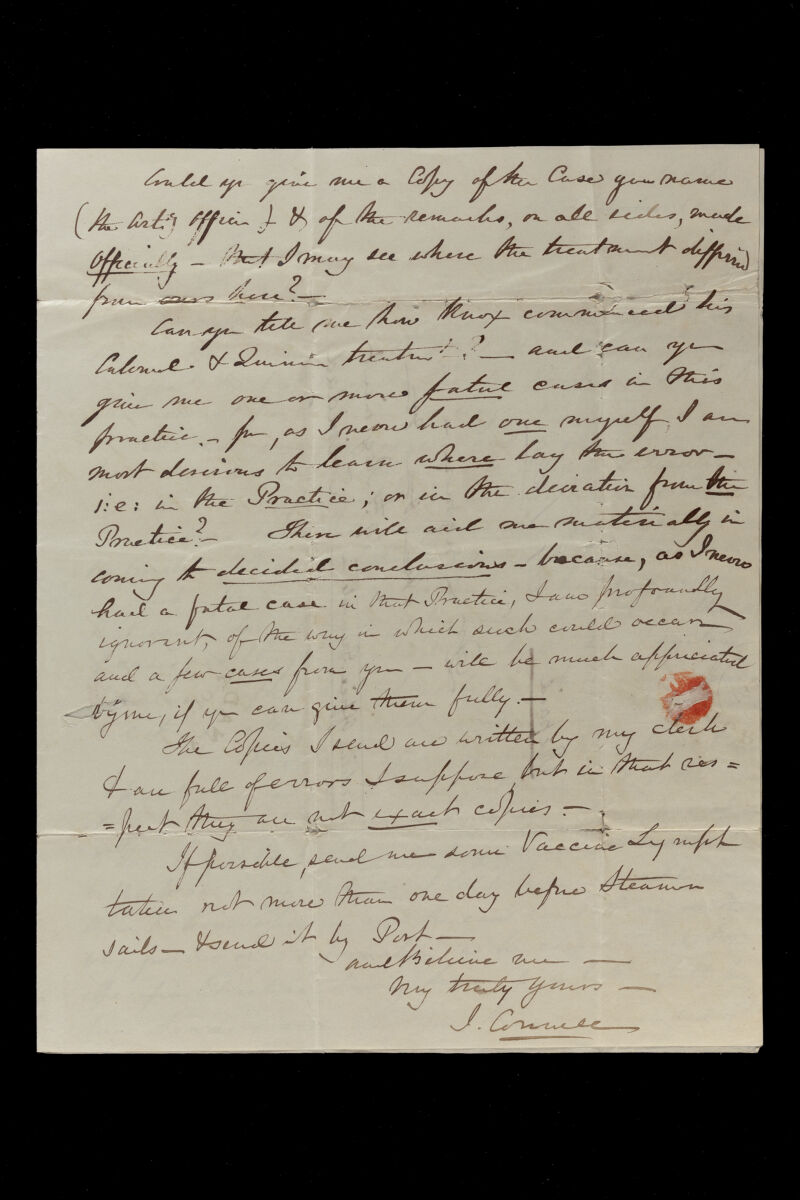 Could yr give me a Copy of the Case you name
(the Arty Officer) & of the remarks, on all sides, made
Officially – that I may see where the treatment differed
from ours here? –
Can yu tell me how Knox commenced his
Calomel & Quinine treatmt? – and can yu
give me one or more fatal cases in this
practice. – for, as I never had one myself, I am
most desirous to learn where lay the error –
i:e: in the Practice; or in the deviation from the
Practice? – These will aid me materially in
coming to decided conclusions – because, as I never
had a fatal case in that Practice, I am profoundly
ignorant, of the way in which such could occur,
and a few cases from yu – will be much appreciated
by me, if yu can give them fully. –
The Copies I send are written by my clerk
& are full of errors I suppose, but in that res=
=pect they are not exact copies. –
If possible, send me some Vaccine Lymph
taken not more than one day before Steamer
sails – & send it by Post –
and Believe me –
Very truly yours –
J.